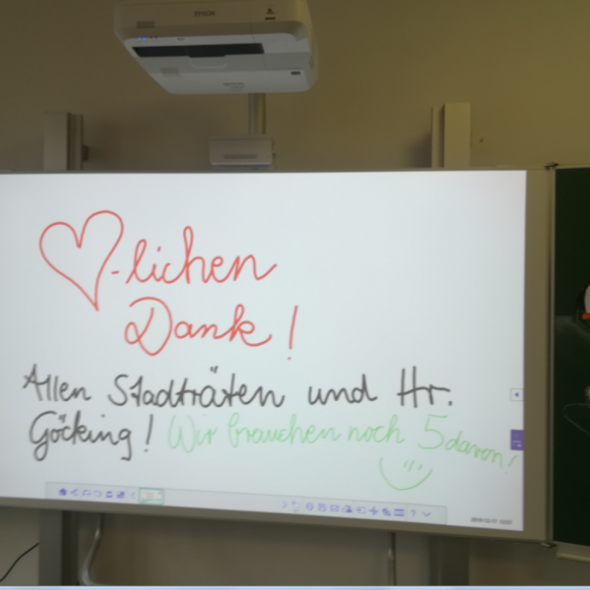 EPSON
-lichen
Dank!
Allen Stadträten und Hr.
Göcking! Wir brauchen noch 5 davon!